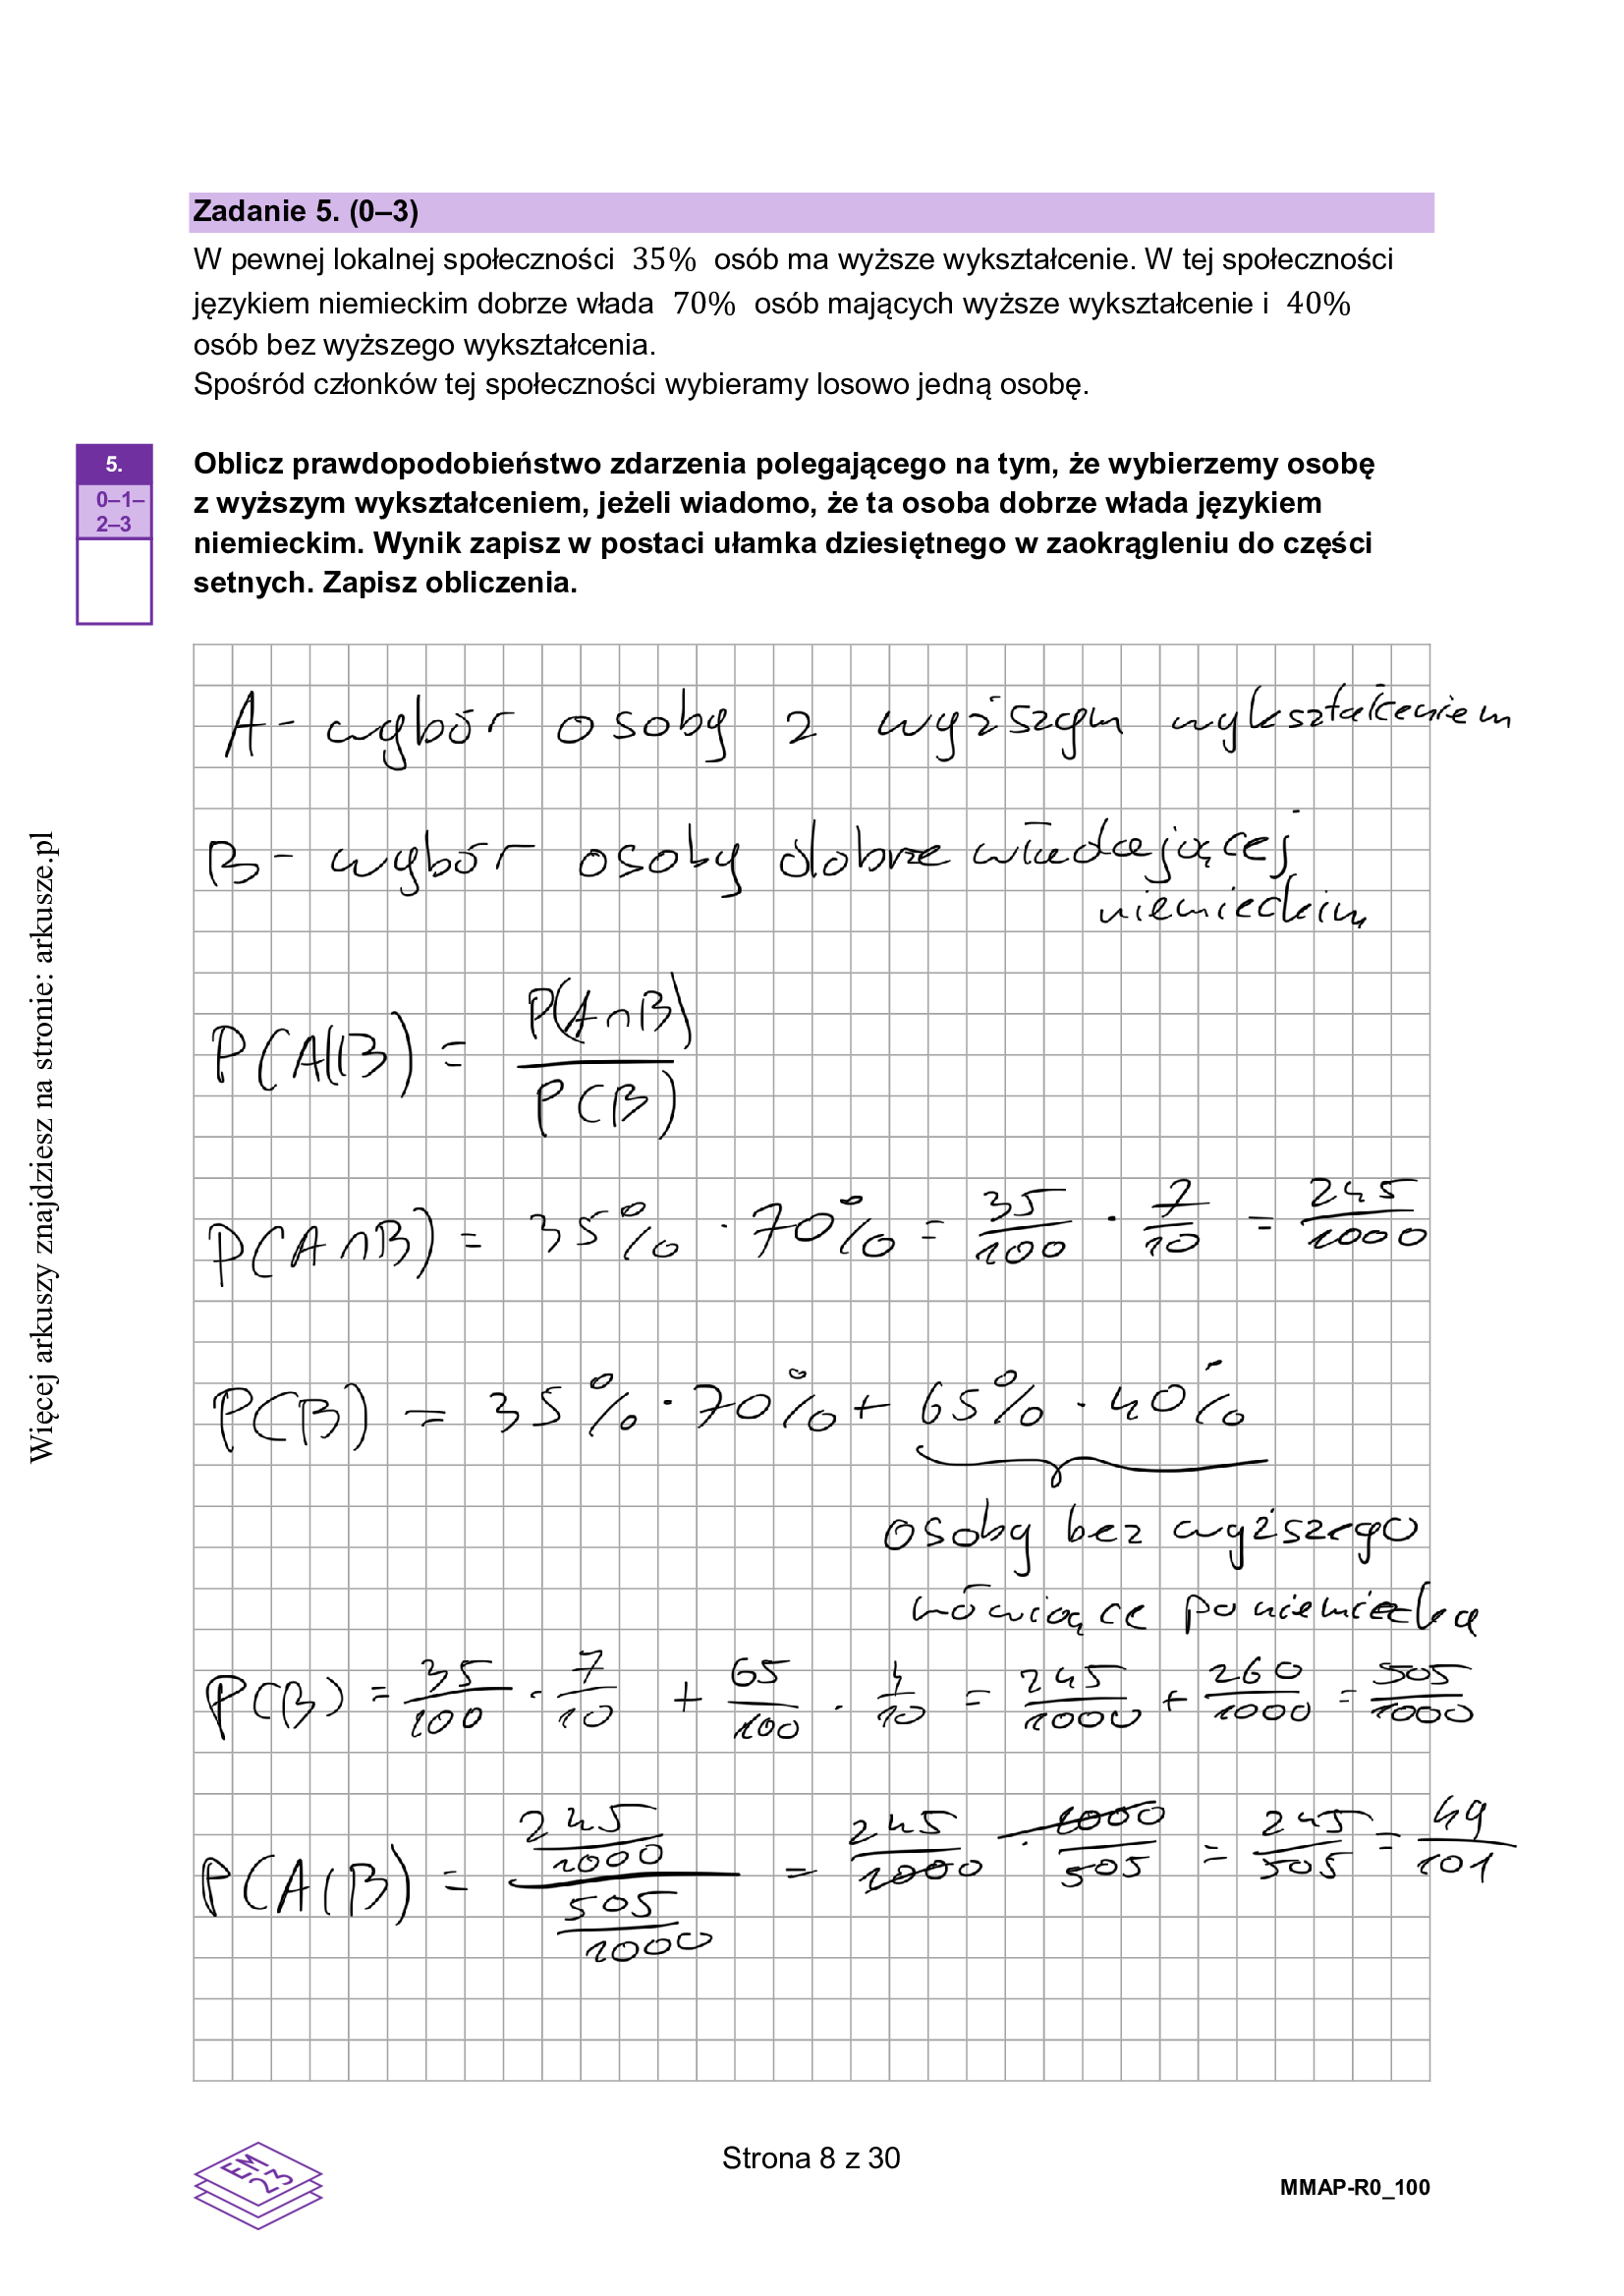 Zadanie 5. (0–3)
W pewnej lokalnej społeczności 35% osób ma wyższe wykształcenie. W tej społeczności
językiem niemieckim dobrze włada 70% osób mających wyższe wykształcenie i 40%
osób bez wyższego wykształcenia.
Spośród członków tej społeczności wybieramy losowo jedną osobę.
5.
0–1–
2–3
Oblicz prawdopodobieństwo zdarzenia polegającego na tym, że wybierzemy osobę
z wyższym wykształceniem, jeżeli wiadomo, że ta osoba dobrze włada językiem
niemieckim. Wynik zapisz w postaci ułamka dziesiętnego w zaokrągleniu do części
setnych. Zapisz obliczenia.
Więcej arkuszy znajdziesz na stronie: arkusze.pl
A - wybór osoby z wyższym wykształceniem
B - wybór osoby dobrze władającej
niemieckim
P(A|B) = P(A∩B) / P(B)
P(A∩B) = 35% · 70% = 35/100 · 7/10 = 245/1000
P(B) = 35% · 70% + 65% · 40%
osoby bez wyższego
mówiące po niemiecku
P(B) = 35/100 · 7/10 + 65/100 · 4/10 = 245/1000 + 260/1000 = 505/1000
P(A|B) = 245/1000 / 505/1000 = 245/1000 · 1000/505 = 245/505 = 49/101
EM
23
Strona 8 z 30
MMAP-R0_100